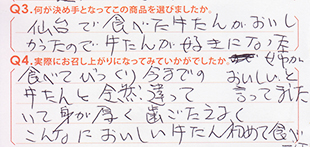 Q3.何が決め手となってこの商品を選びましたか。
仙台で食べた牛たんがおいし
かったので牛たんが好きになった
Q4.実際にお召し上がりになってみていかがでしたか。
食べてびっくり今までの
牛たんと全然違って
いて身が厚く歯ごたえよく
こんなにおいしい牛たん初めて食べ
おいしいと
言ってました